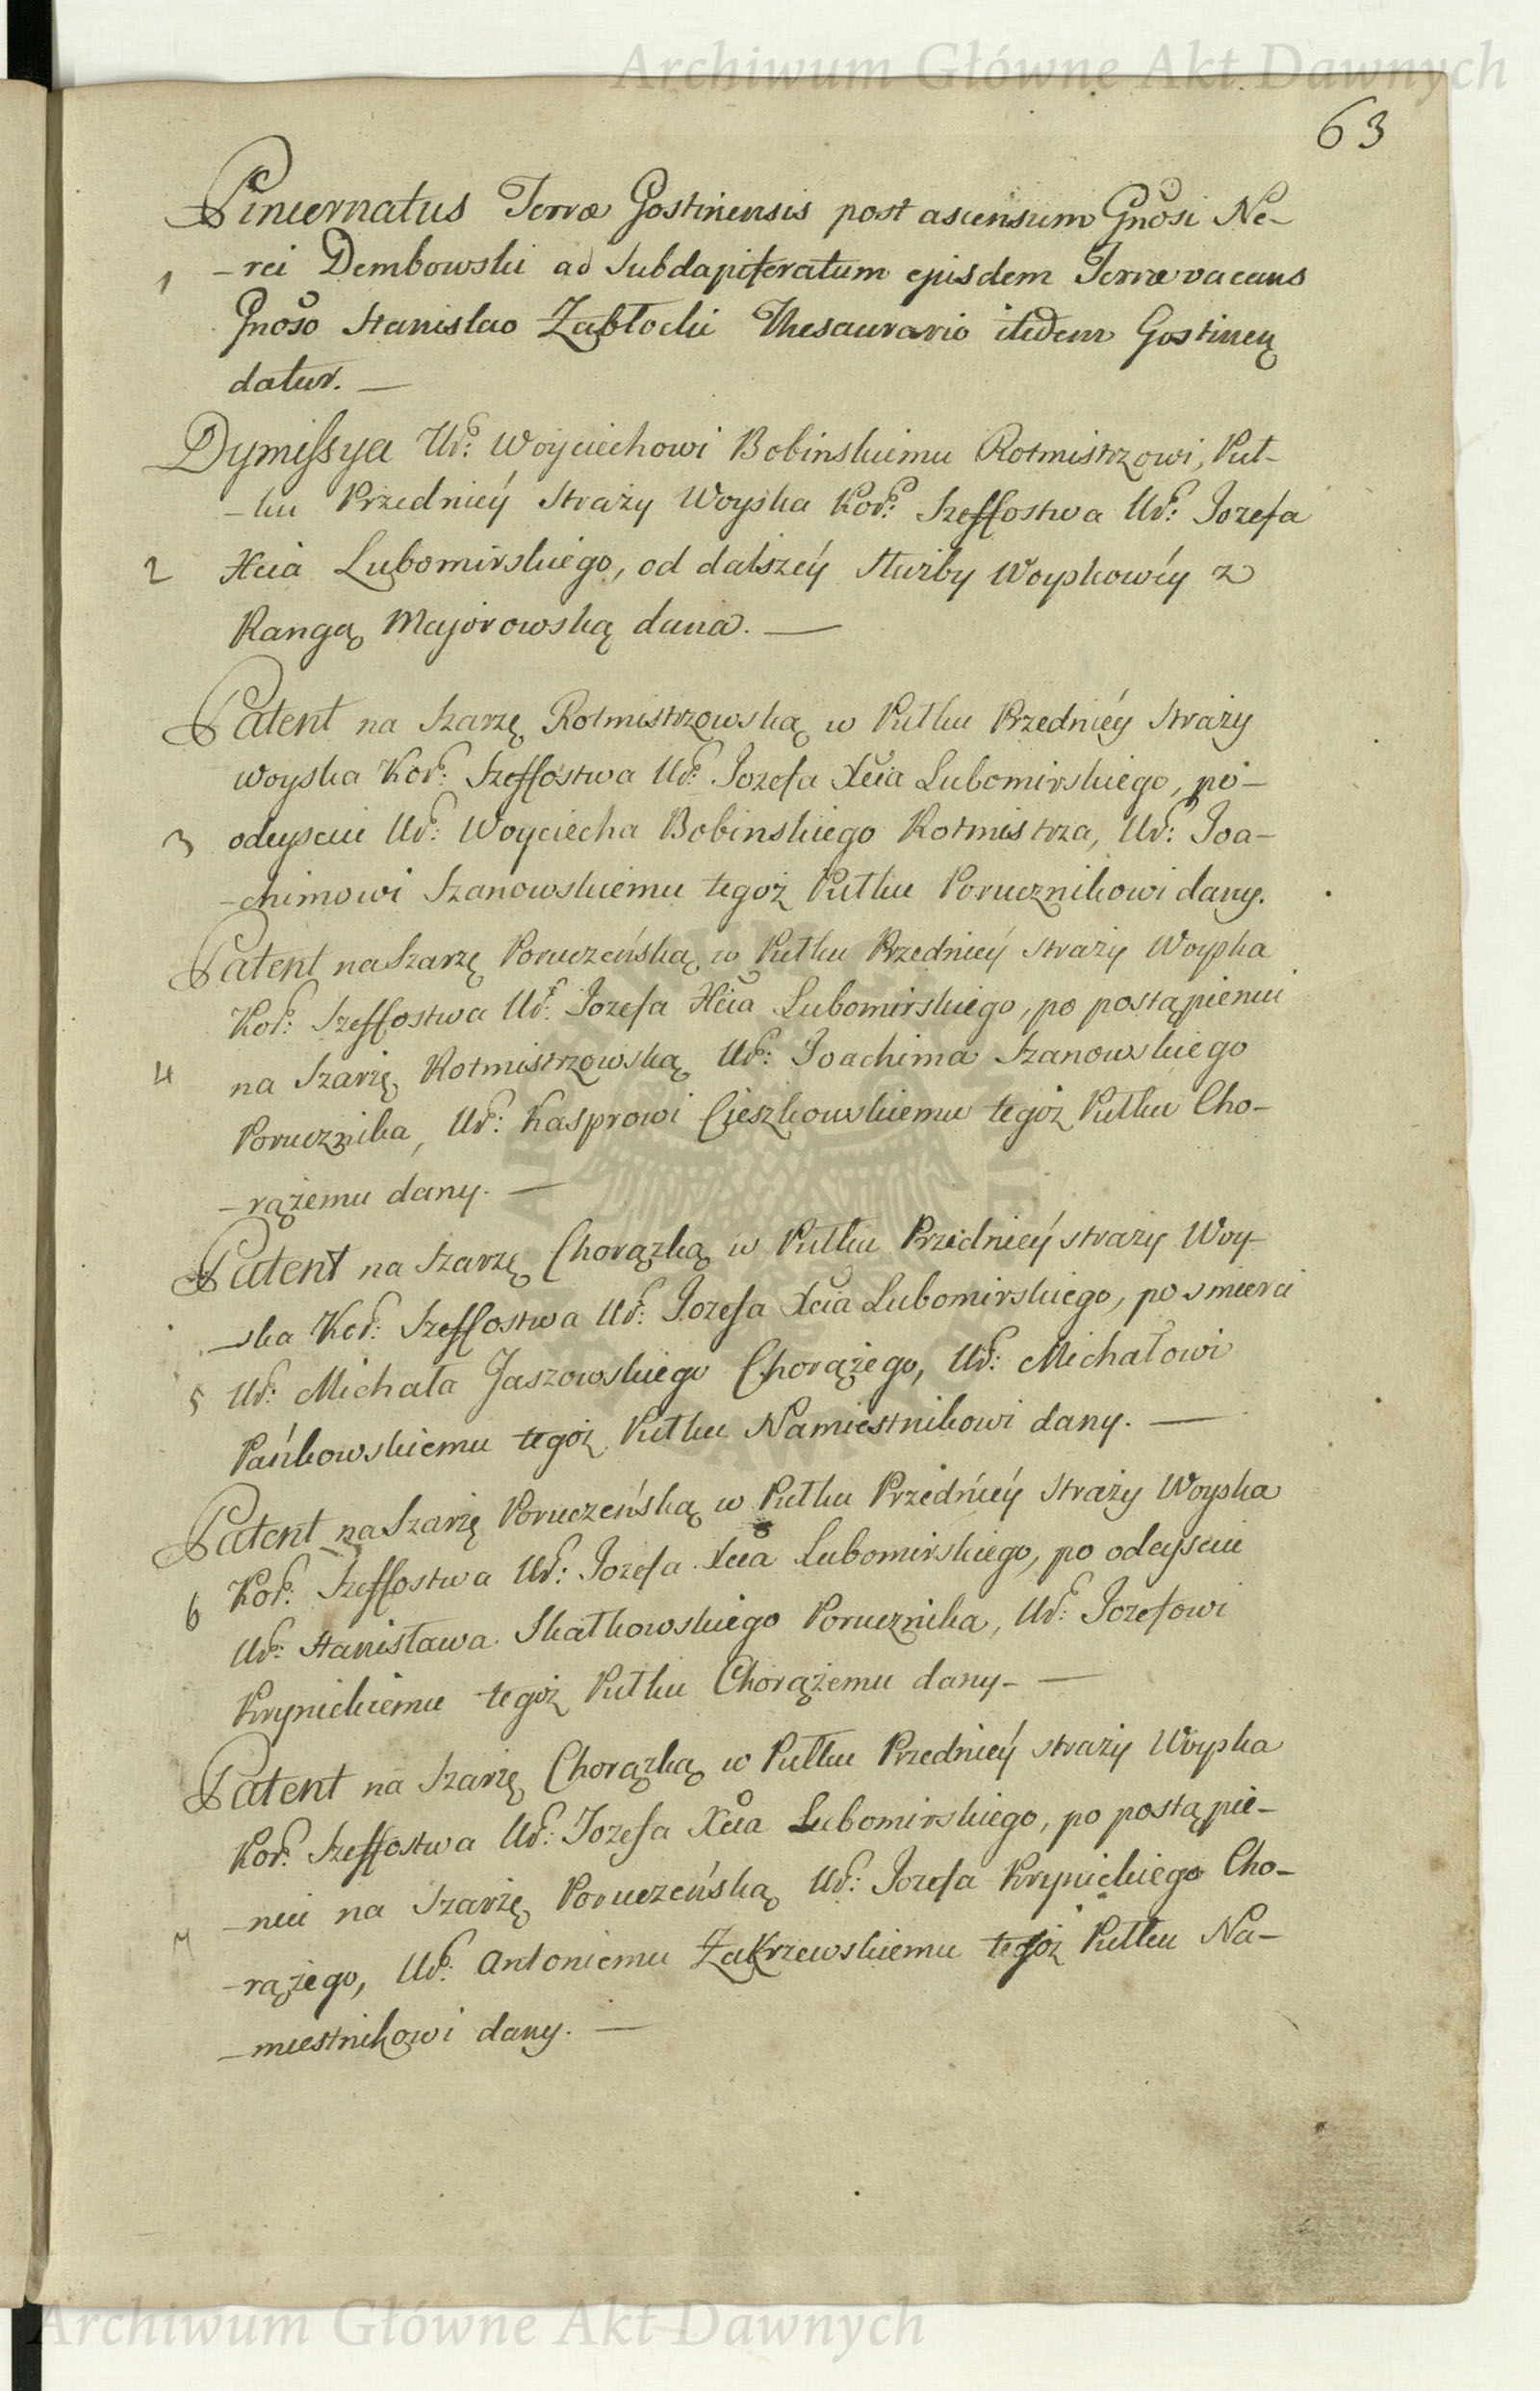 Archiwum Główne Akt Dawnych
63
Pincernatus Terræ Gostinensis post ascensum Gnosi Ne-
1 -rei Dembowski ad Subdapiferatum ejusdem Terræ vacans
Gnoso Stanislao Zabłocki Thesaurario itidem Gostinen
datur. —
Dymissya Ur: Woyciechowi Bobinskiemu Rotmistrzowi, Puł-
-ku Przedniéy Straży Woyska Kor: Szeffostwa Ur: Jozefa
2 Xcia Lubomirskiego, od dalszéy służby Woyskowéy z
Rangą Majorowską dana. —
Patent na Szarżę Rotmistrzowską w Pułku Przedniéy Straży
woyska Kor: Szeffostwa Ur: Jozefa Xcia Lubomirskiego, po-
3 odeysciu Ur: Woyciecha Bobinskiego Rotmistrza, Ur: Joa-
-chimowi Szanowskiemu tegoż Pułku Porucznikowi dany.
Patent na Szarżę Poruczeńską w Pułku Przedniéy straży Woyska
Kor: Szeffostwa Ur: Jozefa Xcia Lubomirskiego, po postąpieniu
4 na Szarżę Rotmistrzowską Ur: Joachima Szanowskiego
Porucznika, Ur: Kasprowi Cieszkowskiemu tegoż Pułku Cho-
-rążemu dany. —
Patent na Szarżę Chorązką w Pułku Przedniéy straży Woy-
-ska Kor: Szeffostwa Ur: Jozefa Xcia Lubomirskiego, po smierci
5 Ur: Michała Jaszowskiego Chorążego, Ur: Michałowi
Pańkowskiemu tegoż Pułku Namiestnikowi dany. —
Patent na Szarżę Poruczeńską w Pułku Przedniéy Straży Woyska
6 Kor: Szeffostwa Ur: Jozefa Xcia Lubomirskiego, po odeysciu
Ur: Stanisława Skałkowskiego Porucznika, Ur: Jozefowi
Krynickiemu tegoż Pułku Chorążemu dany- —
Patent na Szarżę Chorązką w Pułku Przedniéy straży Woyska
Kor: Szeffostwa Ur: Jozefa Xcia Lubomirskiego, po postąpie-
-niu na Szarżę Poruczeńską Ur: Jozefa Krynickiego Cho-
7 -rążego, Ur: Antoniemu Zakrzewskiemu tegoż Pułku Na-
-miestnikowi dany. —
Archiwum Główne Akt Dawnych